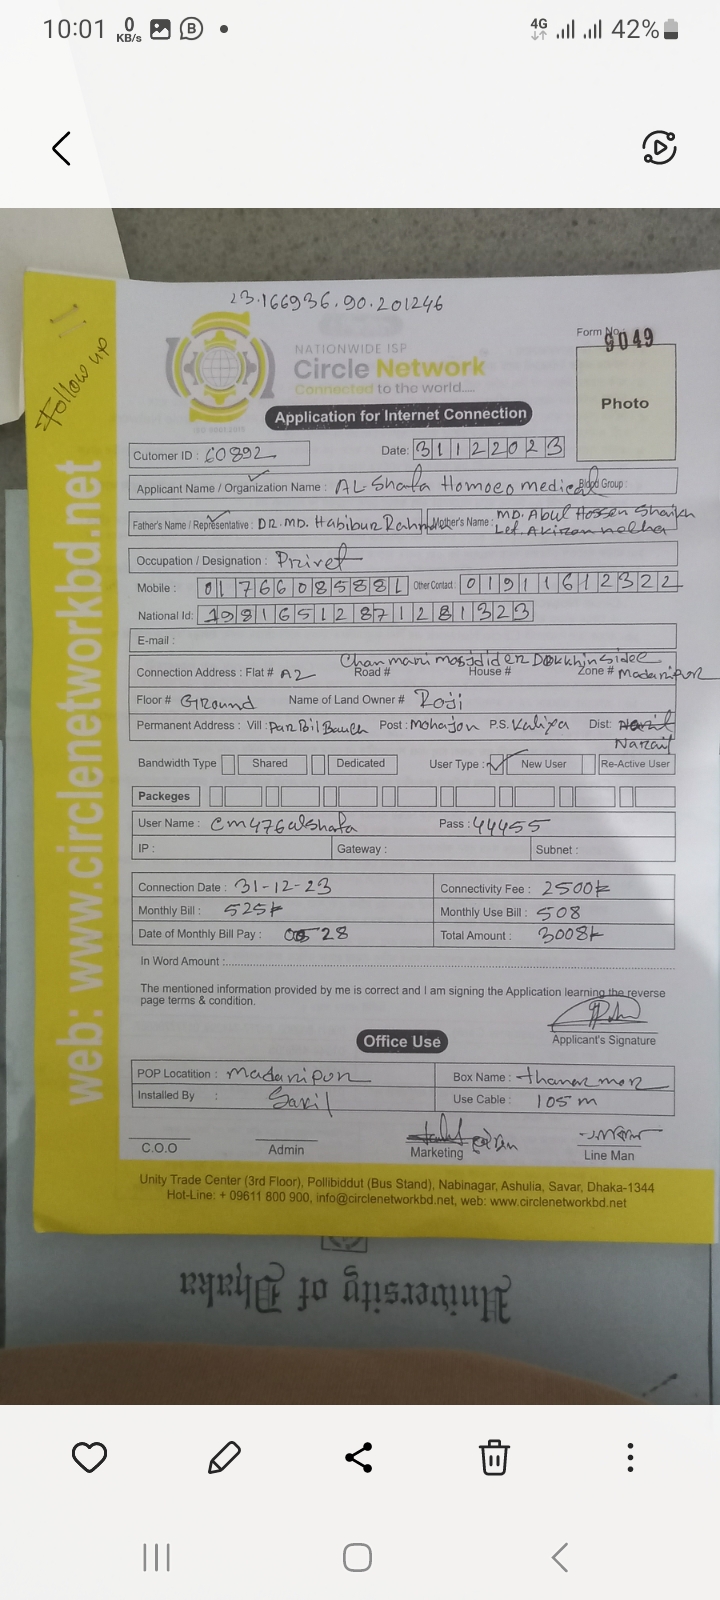 10:01 0 KB/s B 4G 42%
23.166936.90.201246
Follow up
NATIONWIDE ISP
Circle Network
Connected to the world.....
Form No.: 9049
Photo
Application for Internet Connection
Cutomer ID : 60892 Date: 31122023
Applicant Name / Organization Name : AL Shafa Homoeo medical Blood Group :
Father's Name / Representative : DR. MD. Habibur Rahman Mother's Name : MD. Abul Hossen Shaikh
Occupation / Designation : Privet
Mobile : 01766085881 Other Contact : 01911612322
National Id: 19816512871281323
E-mail :
Connection Address : Flat # A2 Road # House # Zone # Madaripur
Floor # Ground Name of Land Owner # Roji
Permanent Address : Vill : Par Bil Bauch Post : Mohajon P.S. Kaliya Dist: Narail
Bandwidth Type Shared Dedicated User Type : New User Re-Active User
Packeges
User Name : cm476alshafa Pass : 44455
IP : Gateway : Subnet :
Connection Date : 31-12-23 Connectivity Fee : 2500
Monthly Bill : 525 Monthly Use Bill : 508
Date of Monthly Bill Pay : 28 Total Amount : 3008
In Word Amount :
The mentioned information provided by me is correct and I am signing the Application learning the reverse
page terms & condition.
Applicant's Signature
Office Use
POP Locatition : Madaripur Box Name : thanar mor
Installed By : Sakil Use Cable : 105 m
C.O.O Admin Marketing Line Man
Unity Trade Center (3rd Floor), Pollibiddut (Bus Stand), Nabinagar, Ashulia, Savar, Dhaka-1344
Hot-Line: + 09611 800 900, info@circlenetworkbd.net, web: www.circlenetworkbd.net
web: www.circlenetworkbd.net
University of Dhaka